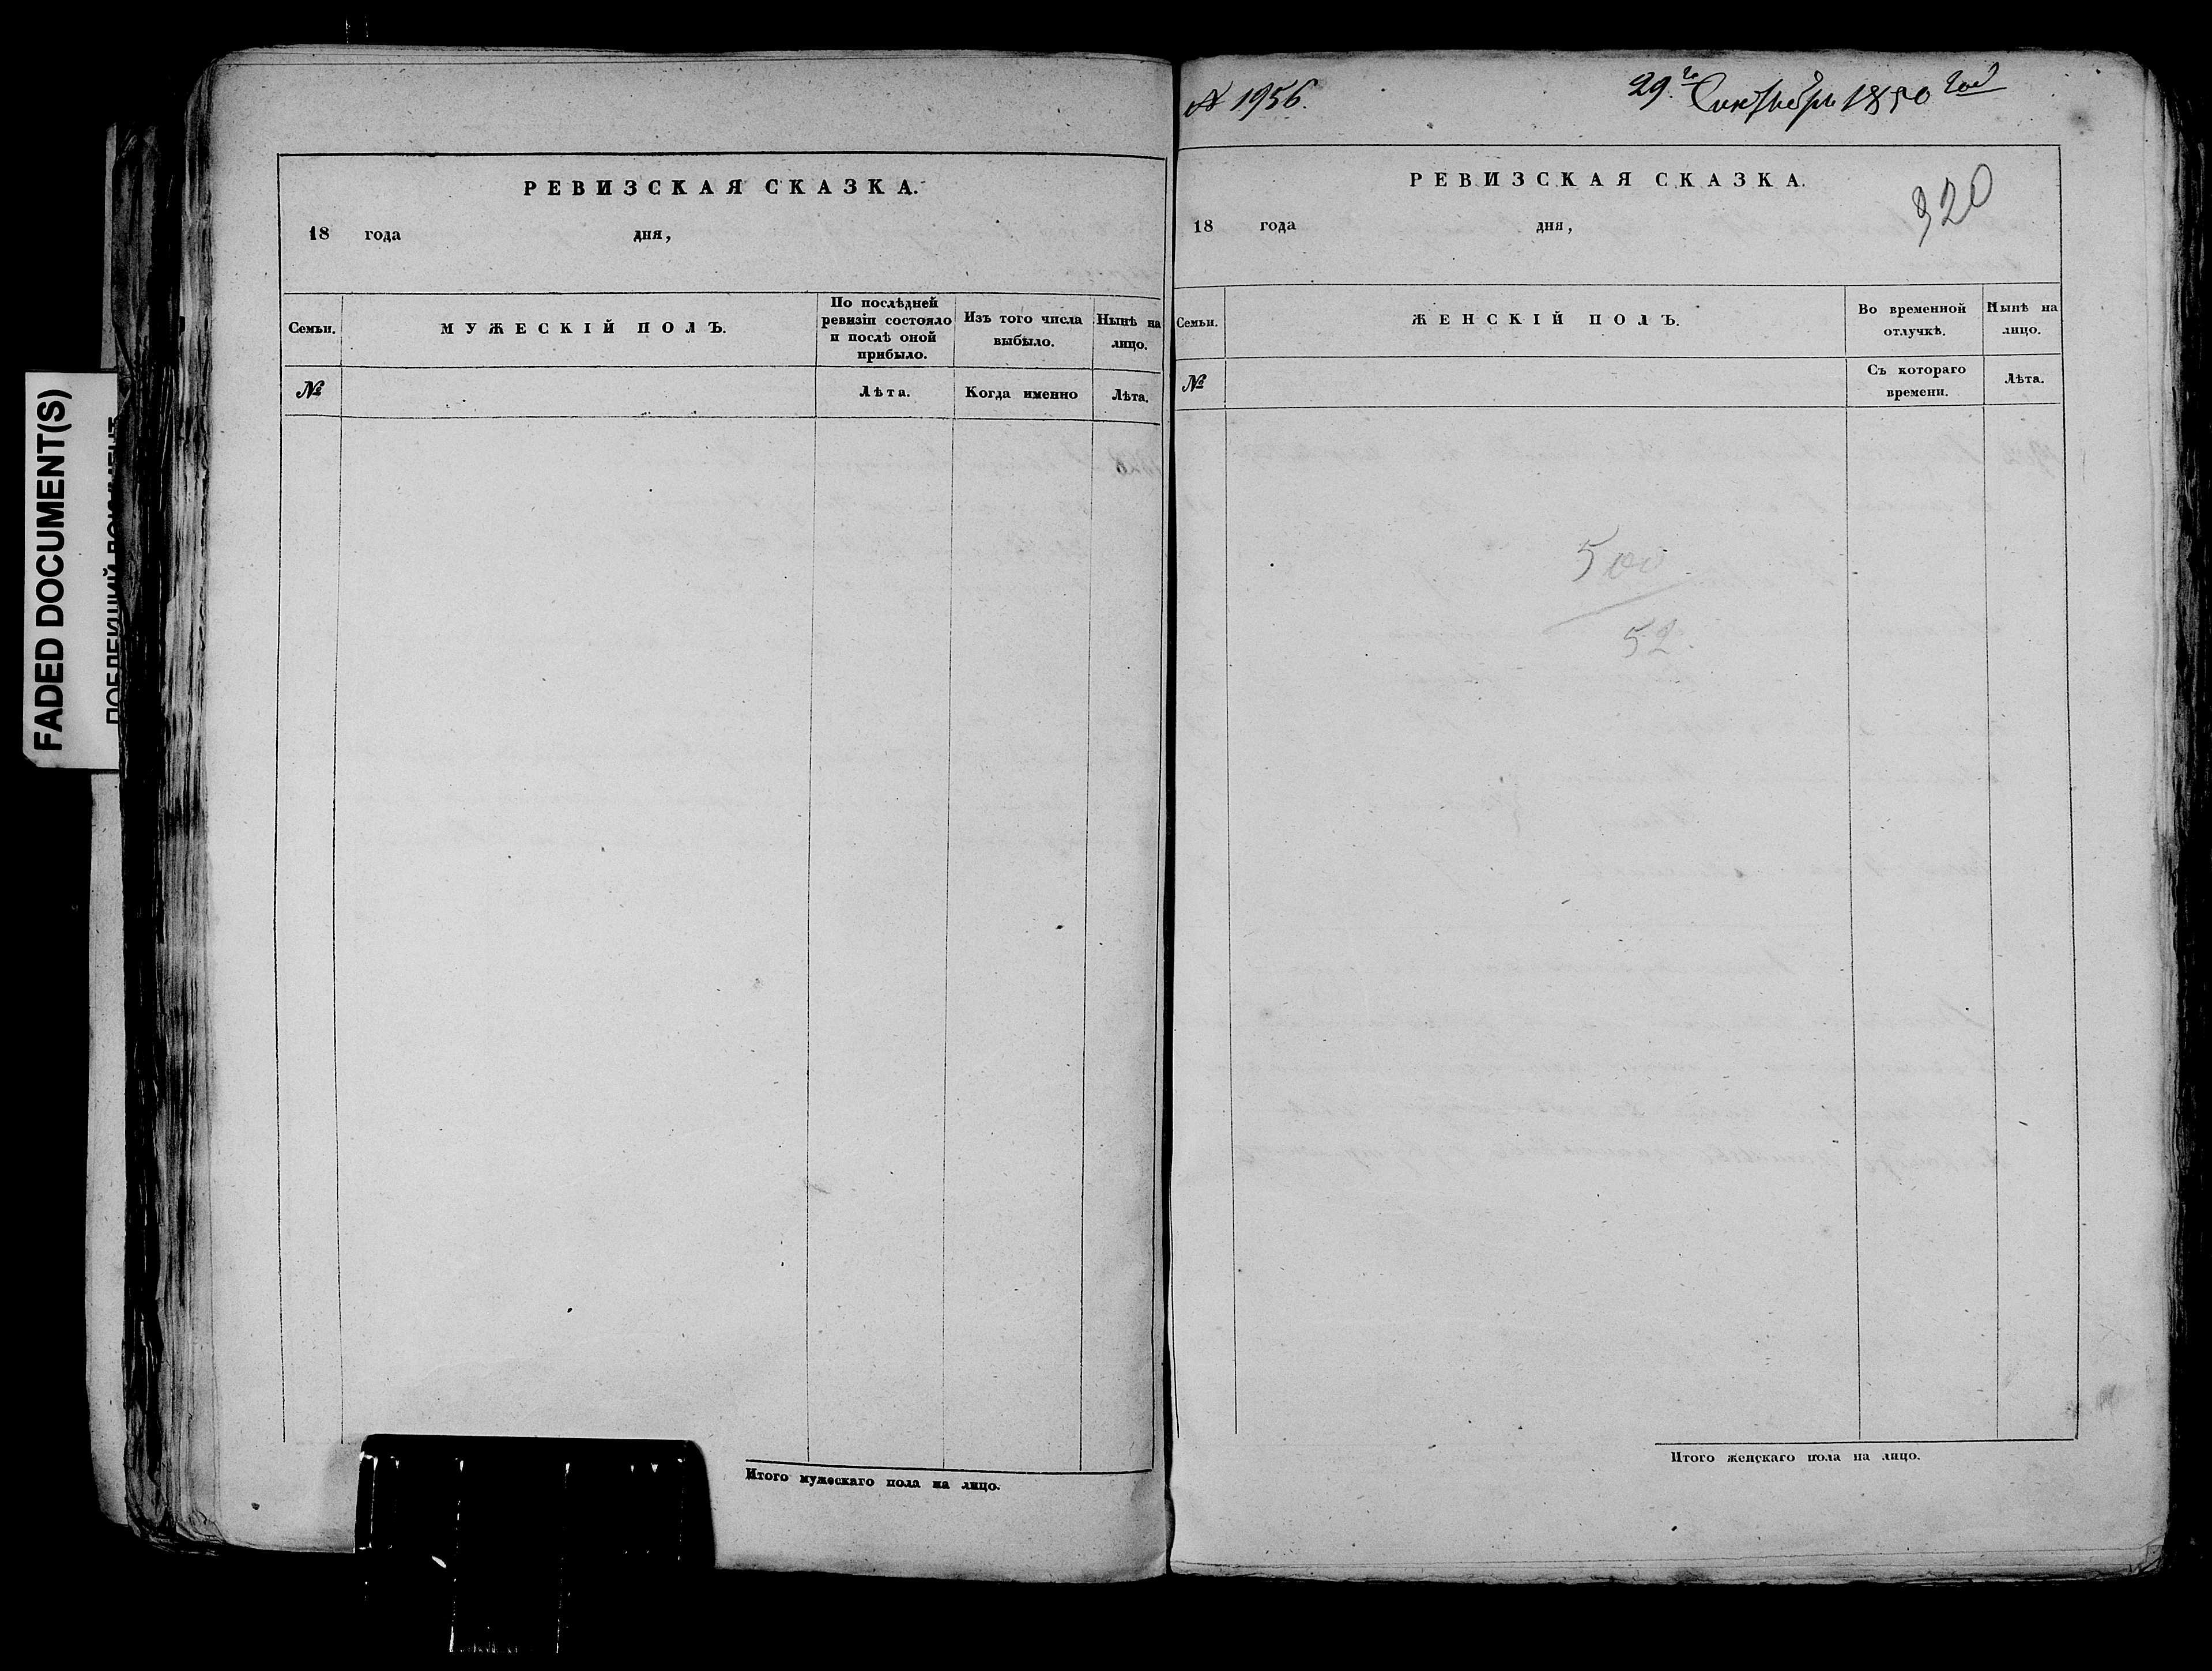 FADED DOCUMENT(S)
РЕВИЗСКАЯ СКАЗКА.
18 года дня,
Семьи.
МУЖЕСКІЙ ПОЛЪ.
По послѣдней
ревизіи состояло
и послѣ оной
прибыло.
Изъ того числа
выбыло.
Нынѣ на
лицо.
№
Лѣта.
Когда именно
Лѣта.
Итого мужескаго пола на лицо.
№ 1956.
29го Сентября 1850 год
РЕВИЗСКАЯ СКАЗКА.
320
18 года дня,
Семьи.
ЖЕНСКІЙ ПОЛЪ.
Во временной
отлучкѣ.
Нынѣ на
лицо.
№
Съ котораго
времени.
Лѣта.
500
52.
Итого женскаго пола на лицо.